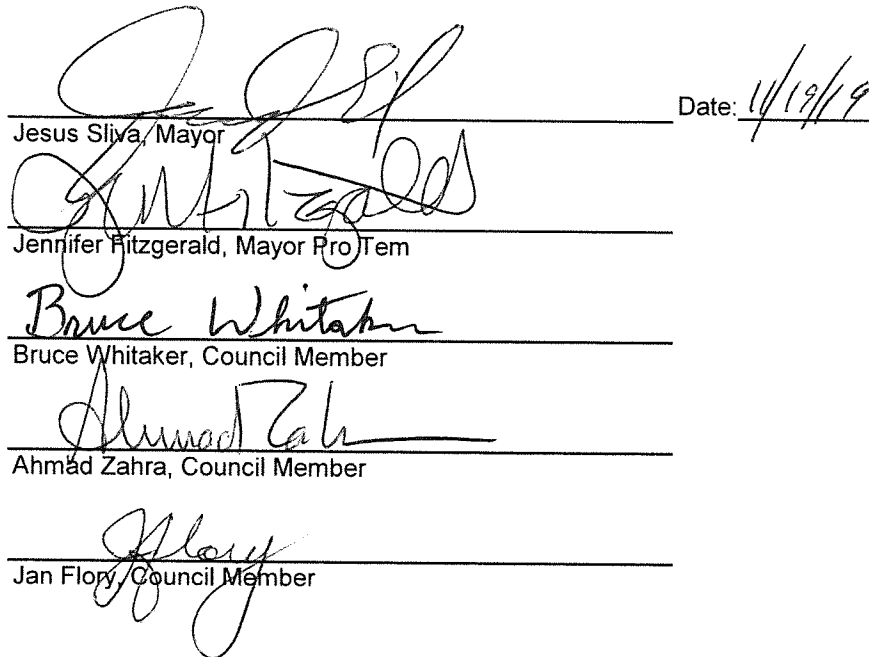 Date: 11/19/19
Jesus Sliva, Mayor
J Fitzgerald
Jennifer Fitzgerald, Mayor Pro Tem
Bruce Whitaker
Bruce Whitaker, Council Member
Ahmad Zahra
Ahmad Zahra, Council Member
J Flory
Jan Flory, Council Member